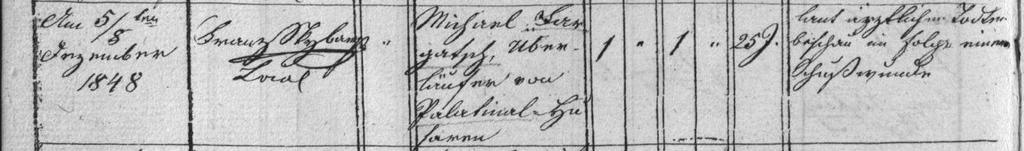 Am 5/8ten
Dezember
1848
Franz
"
Michael Far-
gatsch, Über-
läufer von
Palatinal-Hu-
saren
1 " 1 " 25 J.
laut ärztlicher Todten-
beschau in Folge einer
Schußwunde